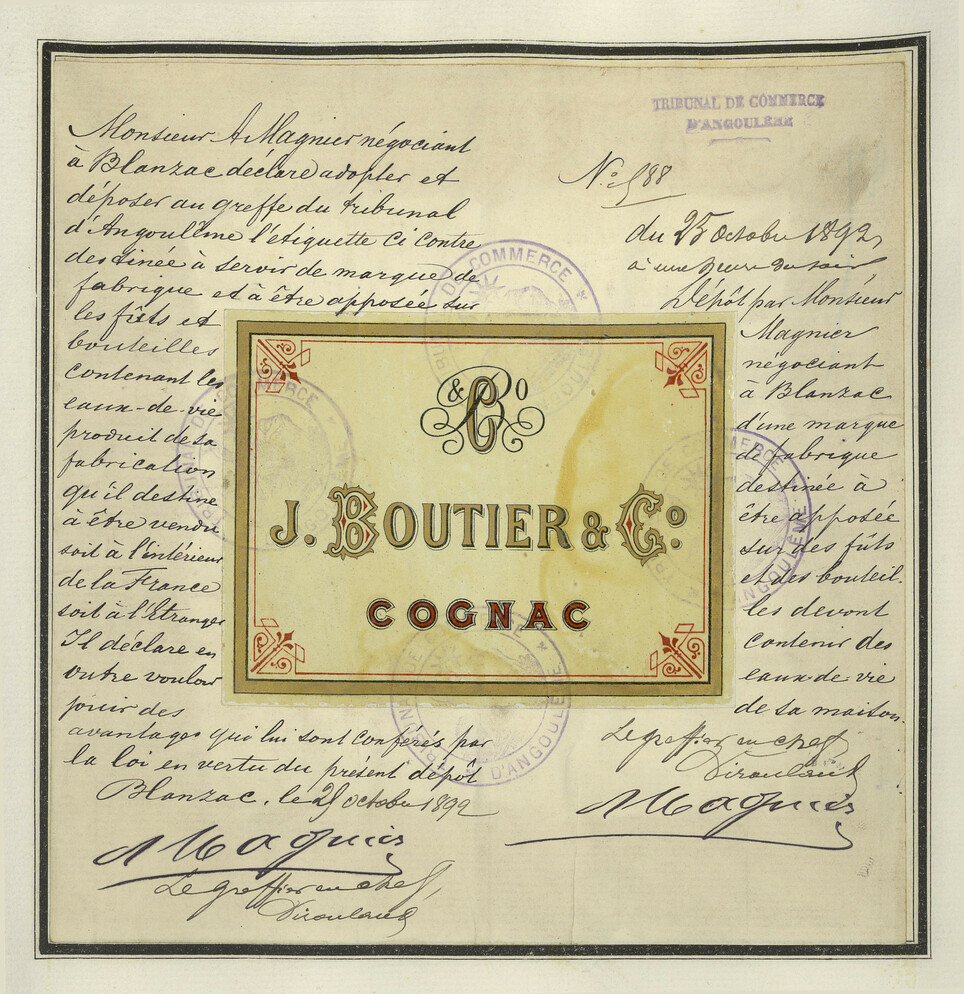 Monsieur A Magnier négociant
à Blanzac déclare adopter et
déposer au greffe du tribunal
d'Angoulême l'étiquette ci contre
destinée à servir de marque de
fabrique et à être apposée sur
les fûts et
bouteilles
contenant les
eaux-de-vie
produit de sa
fabrication
qu'il destine
à être vendu
soit à l'intérieur
de la France
soit à l'Etranger
Il déclare en
outre vouloir
jouir des
avantages qui lui sont conférés par
la loi en vertu du présent dépôt
Blanzac, le 25 octobre 1892
A Magnier
Le greffier en chef,
TRIBUNAL DE COMMERCE
D'ANGOULÊME
No 588
du 25 Octobre 1892,
à une heure du soir,
Dépôt par Monsieur
Magnier
négociant
à Blanzac
d'une marque
de fabrique
destinée à
être apposée
sur des fûts
et des bouteil-
les devant
contenir des
eaux-de-vie
de sa maison.
Le greffier en chef
A Magnier
B & Co
J. BOUTIER & Co.
COGNAC
TRIBUNAL DE COMMERCE D'ANGOULÊME
TRIBUNAL DE COMMERCE
TRIBUNAL DE COMMERCE D'ANGOULÊME
TRIBUNAL DE COMMERCE D'ANGOULÊME